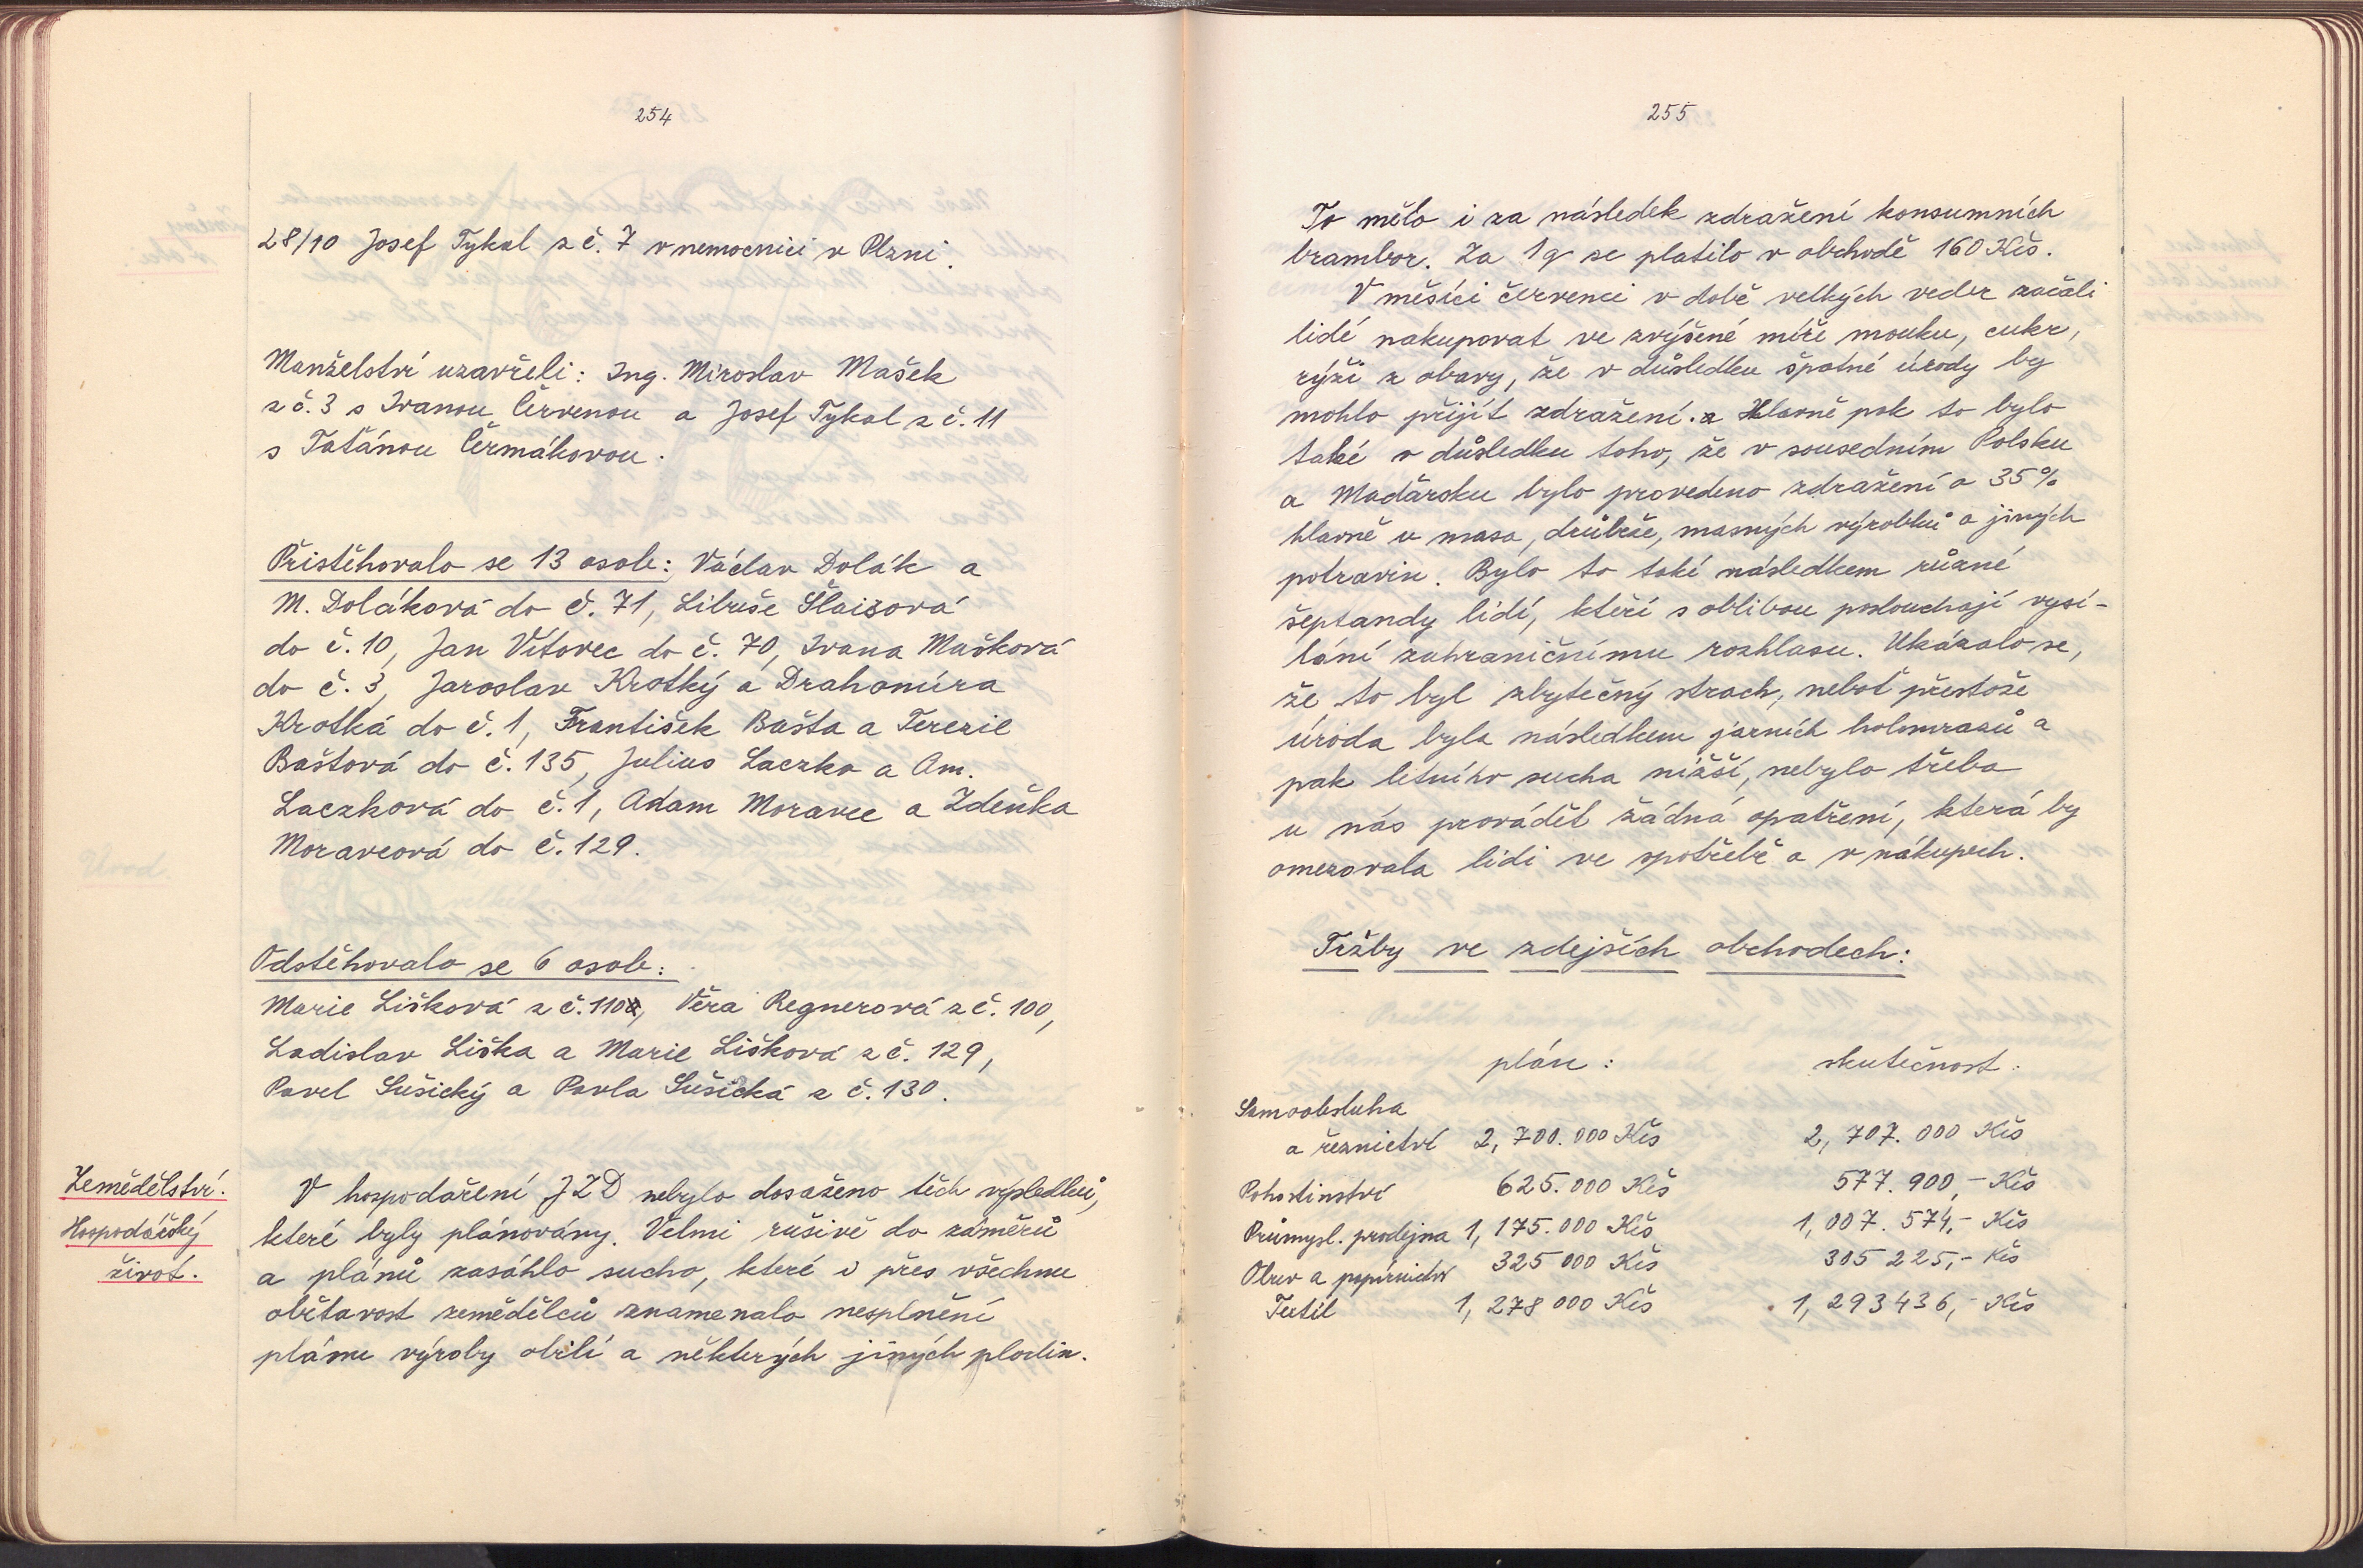 254
28/10 Josef Tykal z č. 7 v nemocnici v Plzni.
Manželství uzavřeli: Ing. Miroslav Mašek
z č. 3 s Ivanou Červenou a Josef Tykal z č. 11
s Taťánou Čermákovou.
Přistěhovalo se 13 osob: Václav Dolák a
M. Doláková do č. 71, Libuše Šlaisová
do č. 10, Jan Vítovec do č. 70, Ivana Mašková
do č. 3, Jaroslav Krotký a Drahomíra
Krotká do č. 1, František Bašta a Terezie
Baštová do č. 135, Julius Laczko a Am.
Laczková do č. 1, Adam Moravec a Zdeňka
Moravcová do č. 129.
Odstěhovalo se 6 osob:
Marie Lišková z č. 110, Věra Regnerová z č. 100,
Ladislav Liška a Marie Lišková z č. 129,
Pavel Sušický a Pavla Sušická z č. 130.
Zemědělství.
Hospodářský
život.
V hospodaření JZD nebylo dosaženo těch výsledků,
které byly plánovány. Velmi rušivě do záměrů
a plánů zasáhlo sucho, které i přes všechnu
obětavost zemědělců znamenalo nesplnění
plánu výroby obilí a některých jiných plodin.
255
To mělo i za následek zdražení konsumních
brambor. Za 1q se platilo v obchodě 160 Kčs.
V měsíci červenci v době velkých veder začali
lidé nakupovat ve zvýšené míře mouku, cukr,
rýži z obavy, že v důsledku špatné úrody by
mohlo přijít zdražení. a Hlavně pak to bylo
také v důsledku toho, že v sousedním Polsku
a Maďarsku bylo provedeno zdražení o 35%
hlavně u masa, drůbeže, masných výrobků a jiných
potravin. Bylo to také následkem různé
šeptandy lidí, kteří s oblibou poslouchají vysí-
lání zahraničnímu rozhlasu. Ukázalo se,
že to byl zbytečný strach, neboť přestože
úroda byla následkem jarních holomrazů a
pak letního sucha nižší, nebylo třeba
u nás provádět žádná opatření, která by
omezovala lidi ve spotřebě a v nákupech.
Tržby ve zdejších obchodech:
plán: skutečnost:
Samoobsluha
a řeznictví 2,700.000 Kčs 2,707.000 Kčs
Pohostinství 625.000 Kčs 577.900,- Kčs
Průmysl. prodejna 1,175.000 Kčs 1,007.574,- Kčs
Obuv a papírnictví 325 000 Kčs 305 225,- Kčs
Textil 1,278 000 Kčs 1,293 436,- Kčs